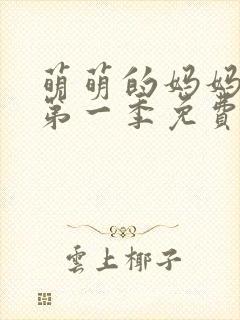 萌萌的妈妈
第一季免費
雲上椰子